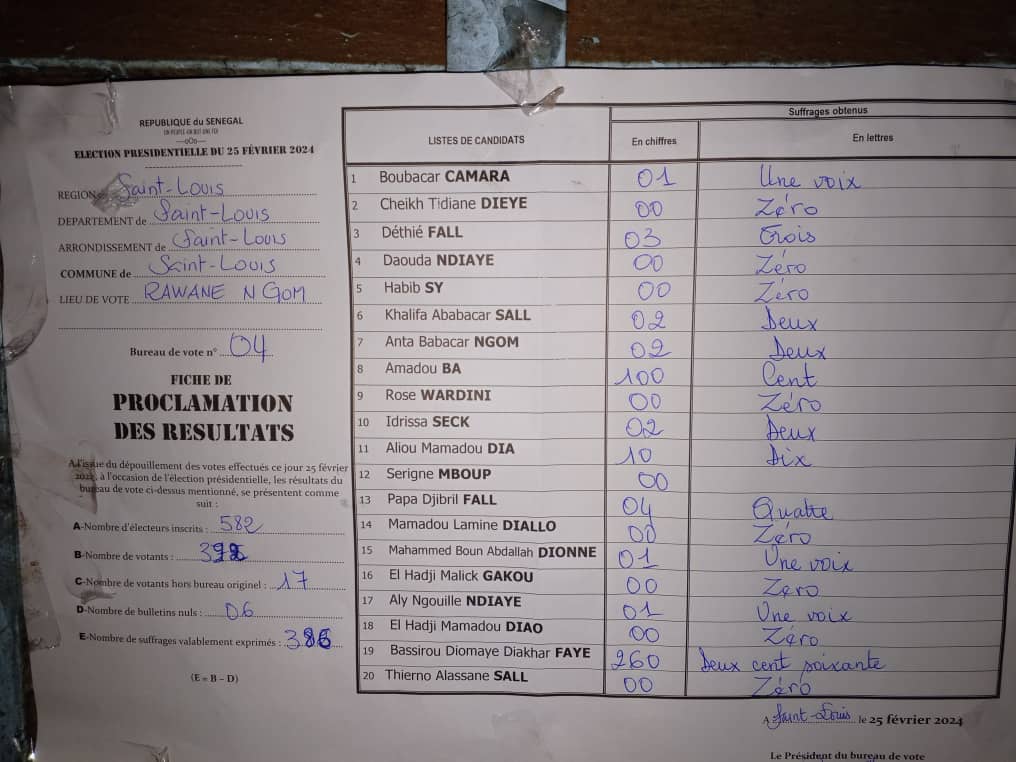 REPUBLIQUE du SENEGAL
UN PEUPLE-UN BUT-UNE FOI
---oOo---
ELECTION PRESIDENTIELLE DU 25 FÉVRIER 2024
REGION Saint-Louis
DEPARTEMENT de Saint-Louis
ARRONDISSEMENT de Saint-Louis
COMMUNE de Saint-Louis
LIEU DE VOTE RAWANE NGOM
Bureau de vote n° 04
FICHE DE
PROCLAMATION
DES RESULTATS
A l'issue du dépouillement des votes effectués ce jour 25 février
2024, à l'occasion de l'élection présidentielle, les résultats du
bureau de vote ci-dessus mentionné, se présentent comme
suit :
A-Nombre d'électeurs inscrits : 582
B-Nombre de votants : 392
C-Nombre de votants hors bureau originel : 17
D-Nombre de bulletins nuls : 06
E-Nombre de suffrages valablement exprimés : 386
(E = B – D)
LISTES DE CANDIDATS Suffrages obtenus
En chiffres En lettres
1 Boubacar CAMARA 01 Une voix
2 Cheikh Tidiane DIEYE 00 Zéro
3 Déthié FALL 03 Trois
4 Daouda NDIAYE 00 Zéro
5 Habib SY 00 Zéro
6 Khalifa Ababacar SALL 02 Deux
7 Anta Babacar NGOM 02 Deux
8 Amadou BA 100 Cent
9 Rose WARDINI 00 Zéro
10 Idrissa SECK 02 Deux
11 Aliou Mamadou DIA 10 Dix
12 Serigne MBOUP 00
13 Papa Djibril FALL 04 Quatre
14 Mamadou Lamine DIALLO 00 Zéro
15 Mahammed Boun Abdallah DIONNE 01 Une voix
16 El Hadji Malick GAKOU 00 Zero
17 Aly Ngouille NDIAYE 01 Une voix
18 El Hadji Mamadou DIAO 00 Zéro
19 Bassirou Diomaye Diakhar FAYE 260 Deux cent soixante
20 Thierno Alassane SALL 00 Zéro
A Saint-Louis le 25 février 2024
Le Président du bureau de vote